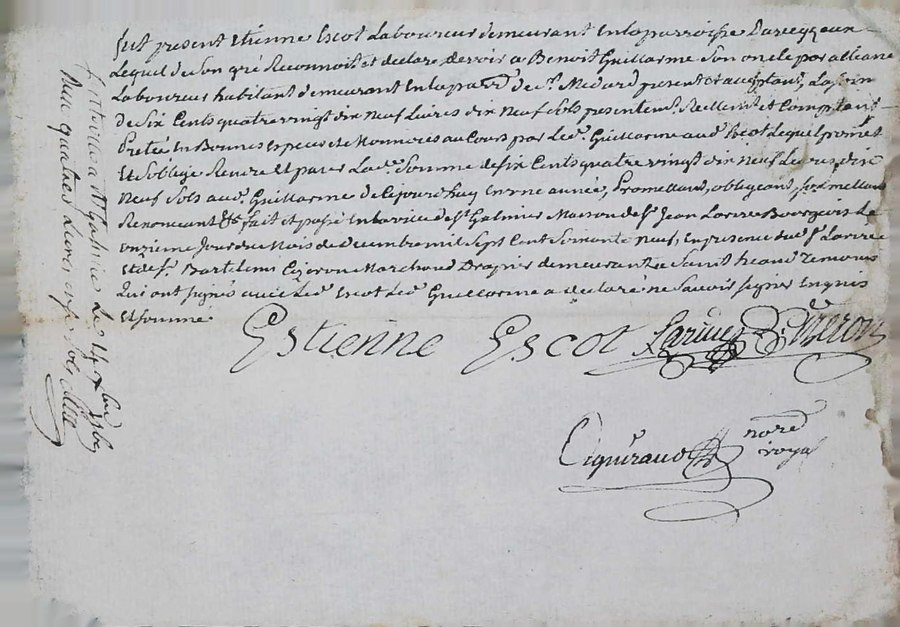 fut present Etienne Escot Laboureur demeurant En la parroisse
Lequel de son gré Reconnoit et declare devoir a Benoit Guillarme Son oncle par alliance
Laboureur habitant demeurant En la parr. de St. Medard present et acceptant, La som
de Six Cents quatre vingt dix Neuf Livres dix Neuf Sols presentemt. Reellemt. et Comptant
Preteé En Bonnes Especes et Monnoies au Cours par Led. Guillarme aud. Escot Lequel promet
Et Soblige Rendre Et payer Lad. Somme de Six Cents quatre vingt dix Neuf Livres dix
Neuf Sols aud. Guillarme de Cejourdhuy En une année, Promettant, obligeant, soumettant
Renonceant &c fait et passé En la ville de St Galmier Maison de Sr. Jean Larive Bourgeois Le
onzieme Jour du Mois de Decembre mil Sept Cent Soixante Neuf, En presence dud. Sr. Larive
Et de Sr. Bartelemi Marchand Drapier demeurant a Saint heand Temoins
Qui ont signé avec Led. Escot Led. Guillarme a declaré ne Savoir signer Enquis
Et sommé.
Estienne Escot Larive
nore
royal
a St Galmier Le
quatre Livres Sols